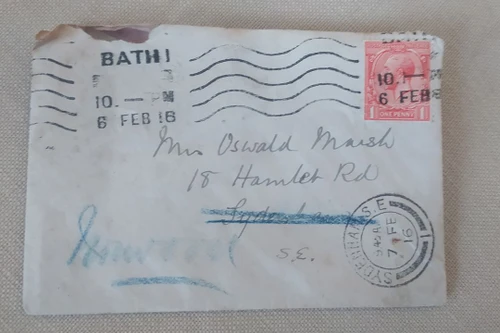 BATH
10. — PM
6 FEB 16
10. —
6 FEB
1 ONE PENNY 1
Mrs Oswald Marsh
18 Hamlet Rd
Sydenham
Norwood
S.E.
SYDENHAM S.E
7 FE
16